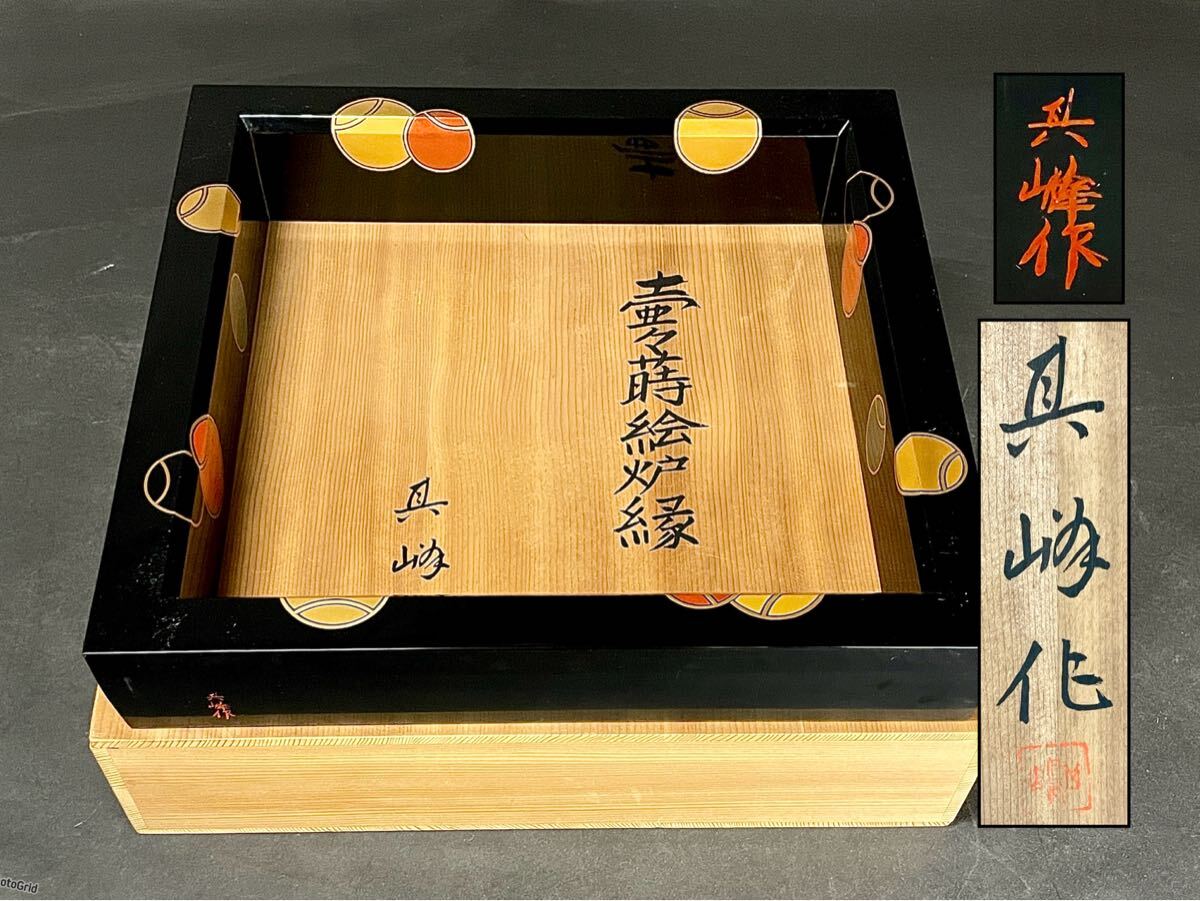 壷々蒔絵炉縁
具峰
具峰作
具峰作
具峰作
otoGrid